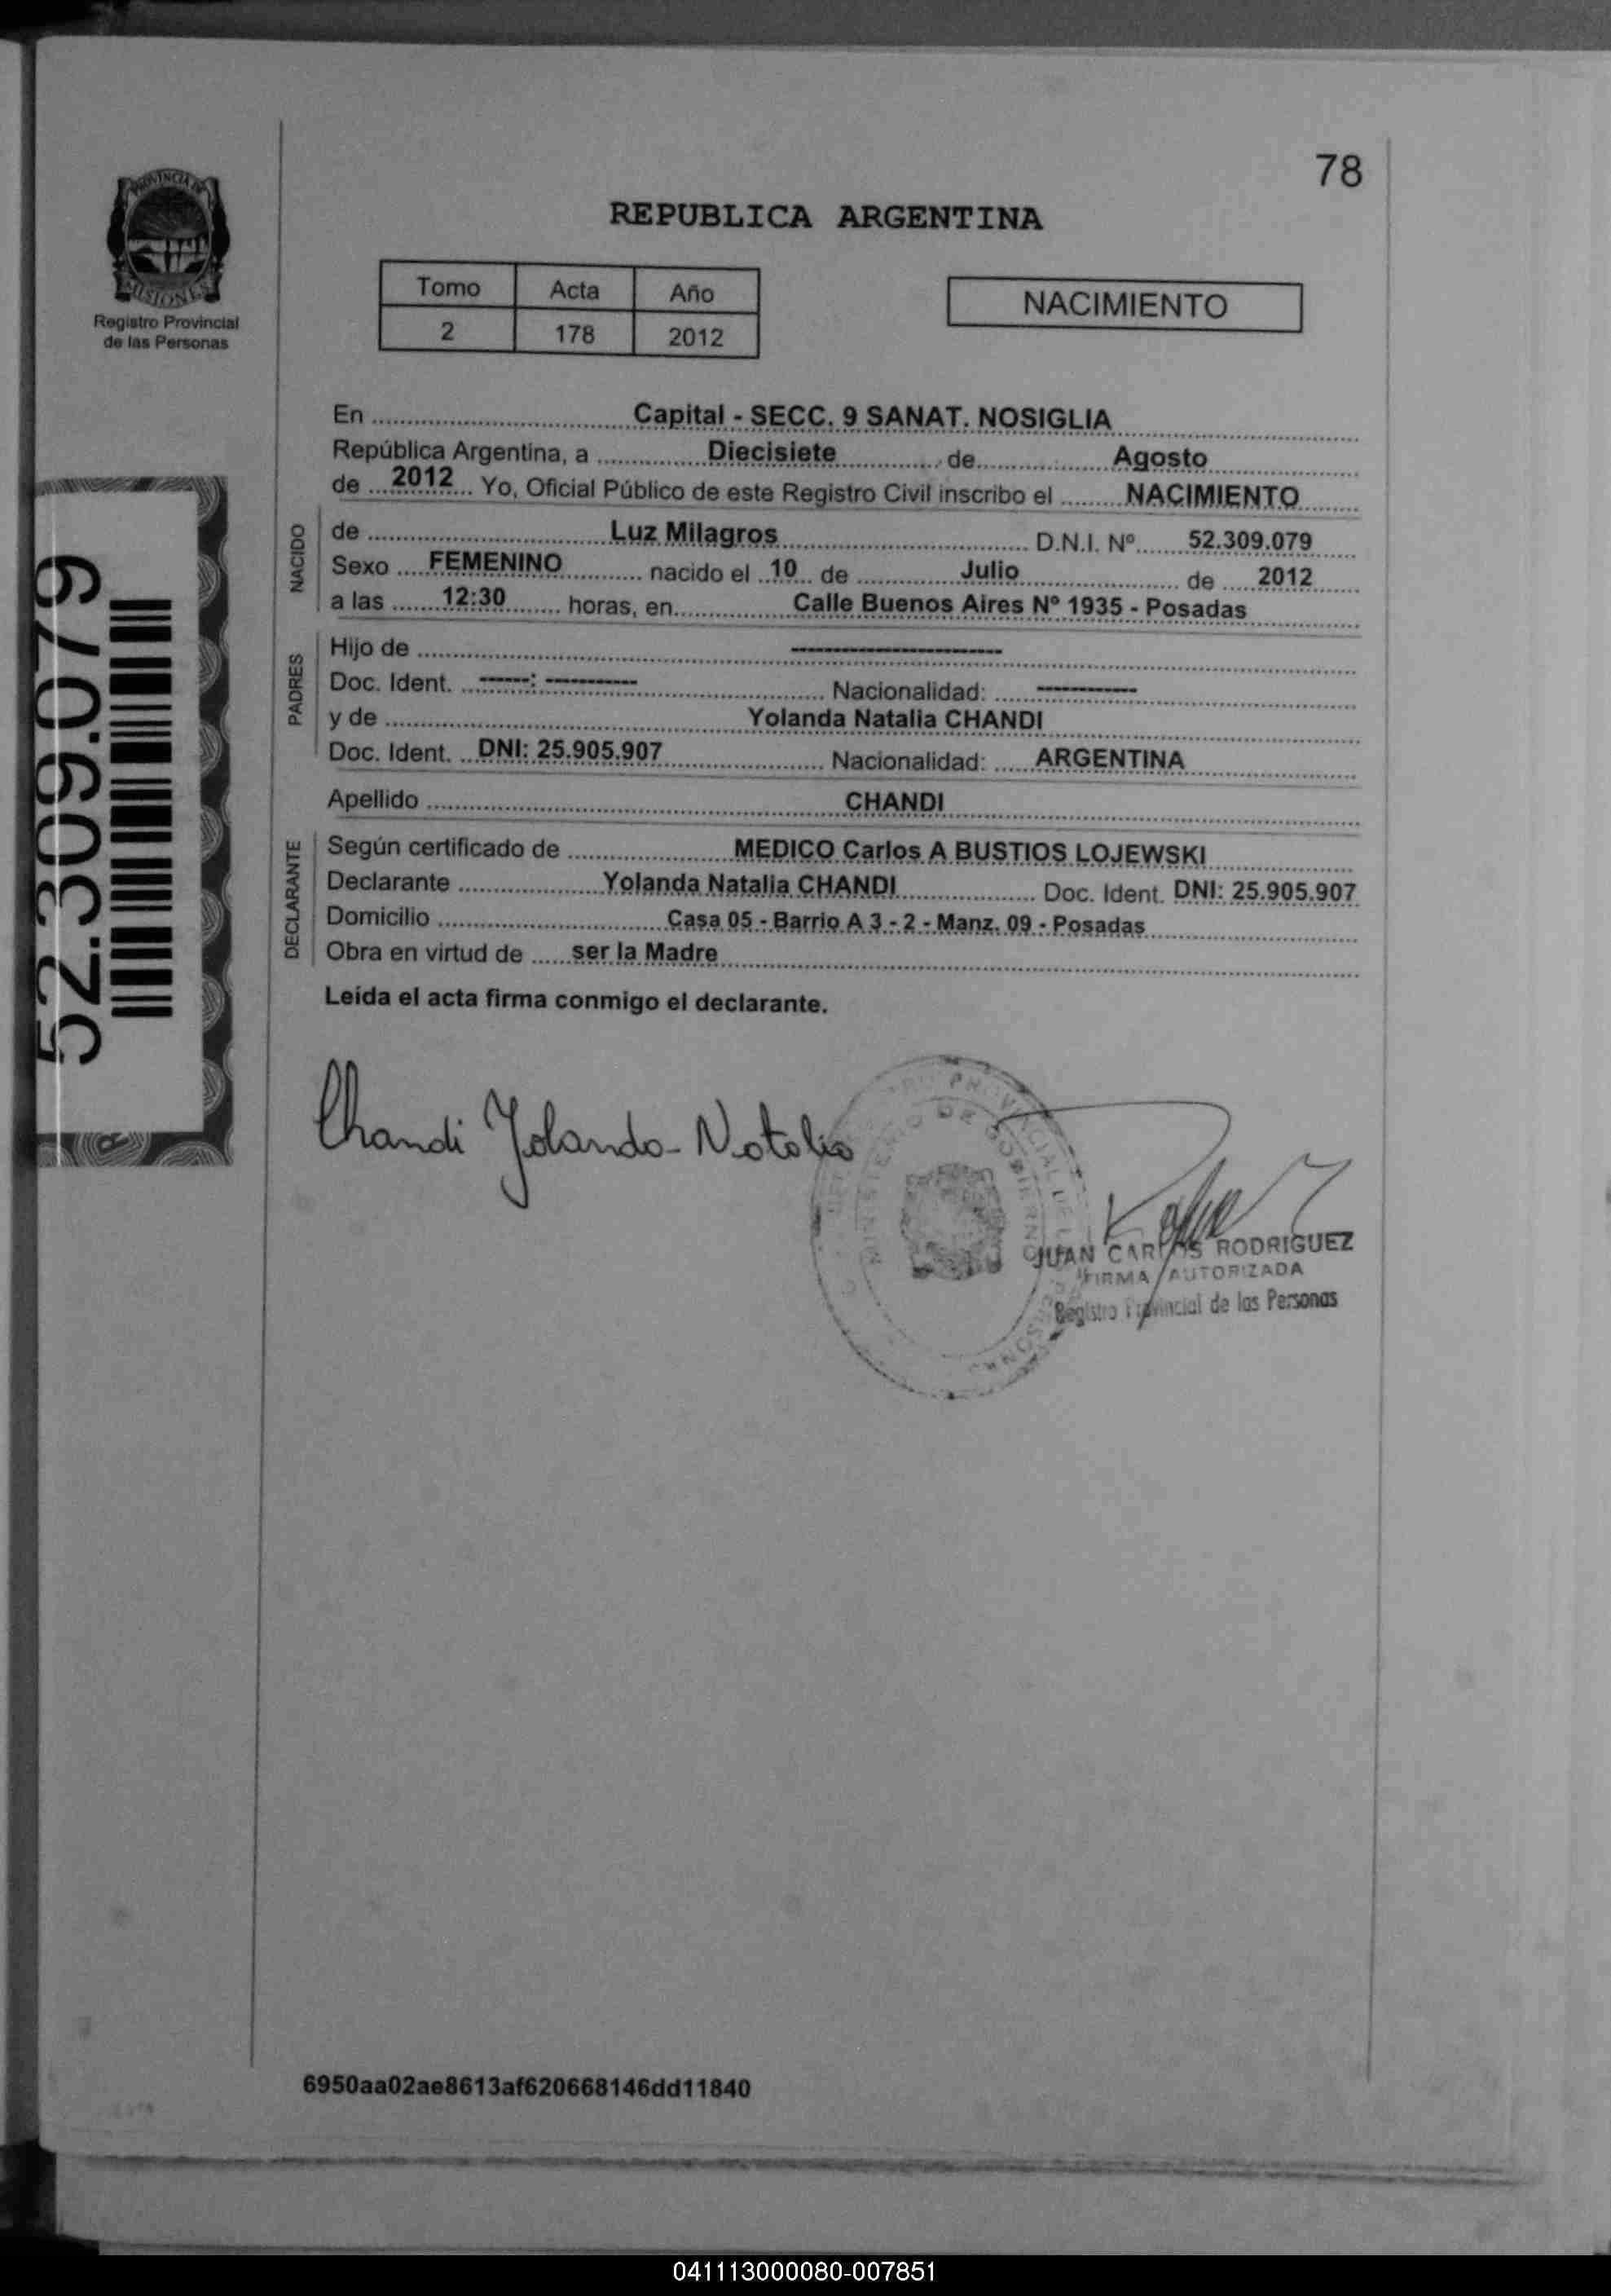 78
PROVINCIA DE
MISIONES
Registro Provincial
de las Personas
REPUBLICA ARGENTINA
Tomo Acta Año
2 178 2012
NACIMIENTO
En Capital - SECC. 9 SANAT. NOSIGLIA
República Argentina, a Diecisiete de Agosto
de 2012 Yo, Oficial Público de este Registro Civil inscribo el NACIMIENTO
NACIDO
de Luz Milagros D.N.I. Nº 52.309.079
Sexo FEMENINO nacido el 10 de Julio de 2012
a las 12:30 horas, en Calle Buenos Aires Nº 1935 - Posadas
PADRES
Hijo de --------------------
Doc. Ident. -----: ---------- Nacionalidad: -----------
y de Yolanda Natalia CHANDI
Doc. Ident. DNI: 25.905.907 Nacionalidad: ARGENTINA
Apellido CHANDI
DECLARANTE
Según certificado de MEDICO Carlos A BUSTIOS LOJEWSKI
Declarante Yolanda Natalia CHANDI Doc. Ident. DNI: 25.905.907
Domicilio Casa 05 - Barrio A 3 - 2 - Manz. 09 - Posadas
Obra en virtud de ser la Madre
Leída el acta firma conmigo el declarante.
52.309.079
Chandi Yolanda Natalia
MINISTERIO DE GOBIERNO
JUAN CARLOS RODRIGUEZ
FIRMA AUTORIZADA
Registro Provincial de las Personas
6950aa02ae8613af620668146dd11840
041113000080-007851